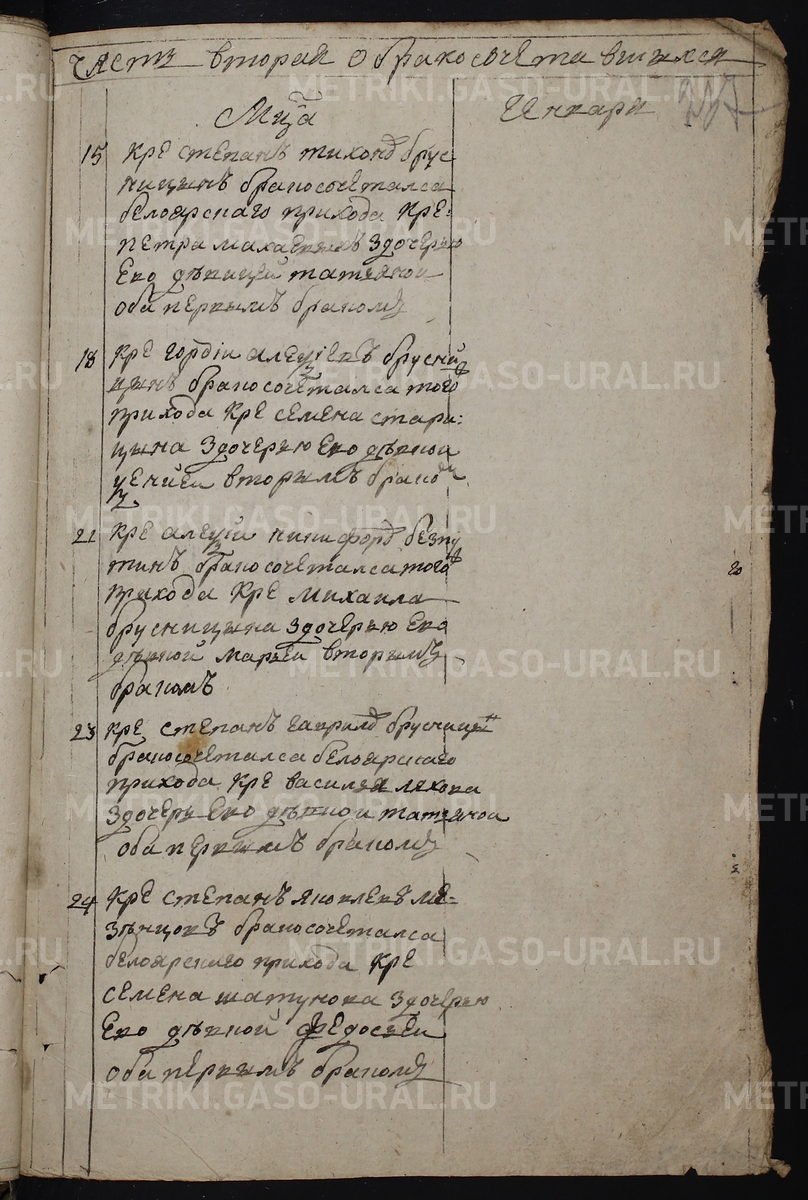 часть вторая о бракосочетавшихся
Мца
Инвари
207
15 Кре степанъ тихоновъ брус
ницынъ бракосочеталса
белоярского прихода Кре:
петра махаевыхъ здочерью
Ево дѣвицей татьяной
оба первымъ бракомъ
18 Кре гордіи алеѯіевъ брусни
цынъ бракосочеталса того
прихода Кре семена стари
цына Здочерью Ево дѣвкоа
вторымъ бракомъ
21 Кре алеѯіи никифоровъ безпу
тинъ бракосочеталса того
прихода Кре михаила
брусницына Здочерью Ево
дѣвкой марьей вторымъ
бракомъ
23 Кре степанъ гавриловъ брусницын
бракосочеталса белоярского
прихода Кре василея ляхова
Здочерью Ево дѣвкои татьяной
оба первымъ бракомъ
24 Кре степанъ яковлевъ ме=
зѣнцовъ бракосочеталса
белоярского прихода Кре
семена шатунова Здочерью
Ево дѣвкой федосьеи
оба первымъ бракомъ
METRIKI.GASO-URAL.RU